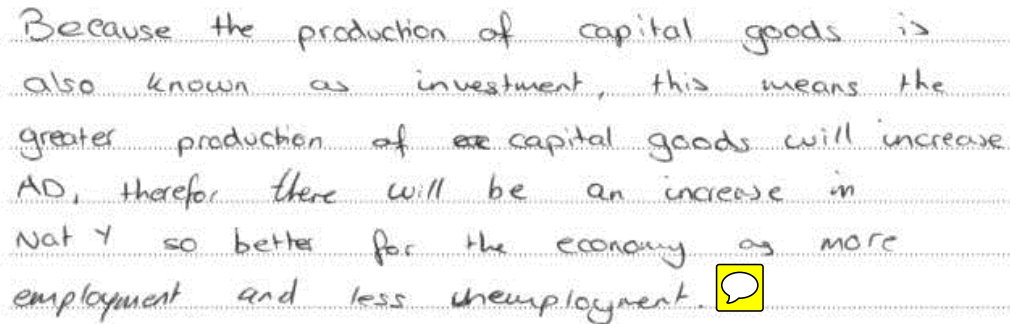 Because the production of capital goods is
also known as investment, this means the
greater production of capital goods will increase
AD, therefor there will be an increase in
Nat Y so better for the economy as more
employment and less unemployment.